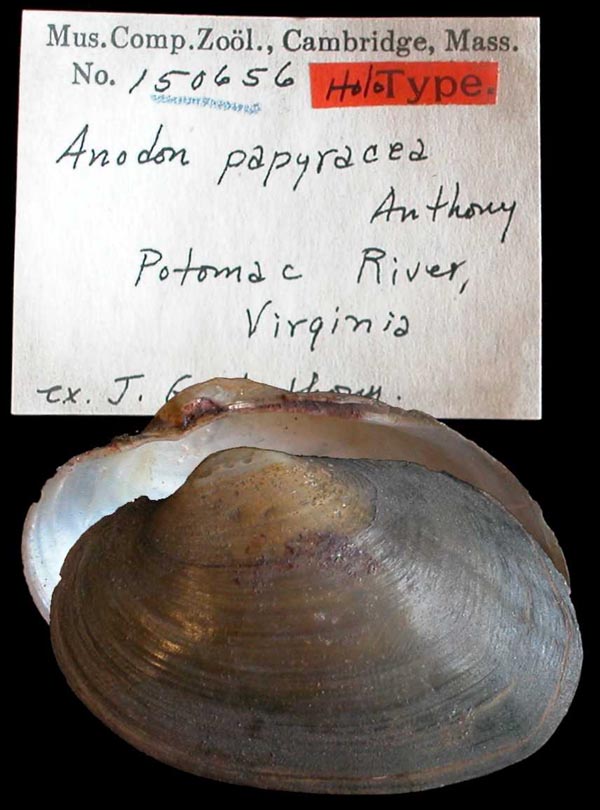 Mus. Comp. Zoöl., Cambridge, Mass.
No. 150656 HoloType.
Anodon papyracea
Anthony
Potomac River,
Virginia
ex. J. G.